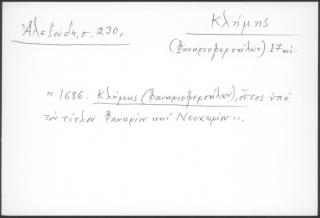 Ἀλεξούδη, σ. 230,
Κλήμης
(Φαναριοφερσάλων) 17 αἰ.
« 1686. Κλήμης (Φαναριοφερσάλων), ὅστις ὑπὸ
τὸν τίτλον Φαναρίου καὶ Νεοχωρίου ».